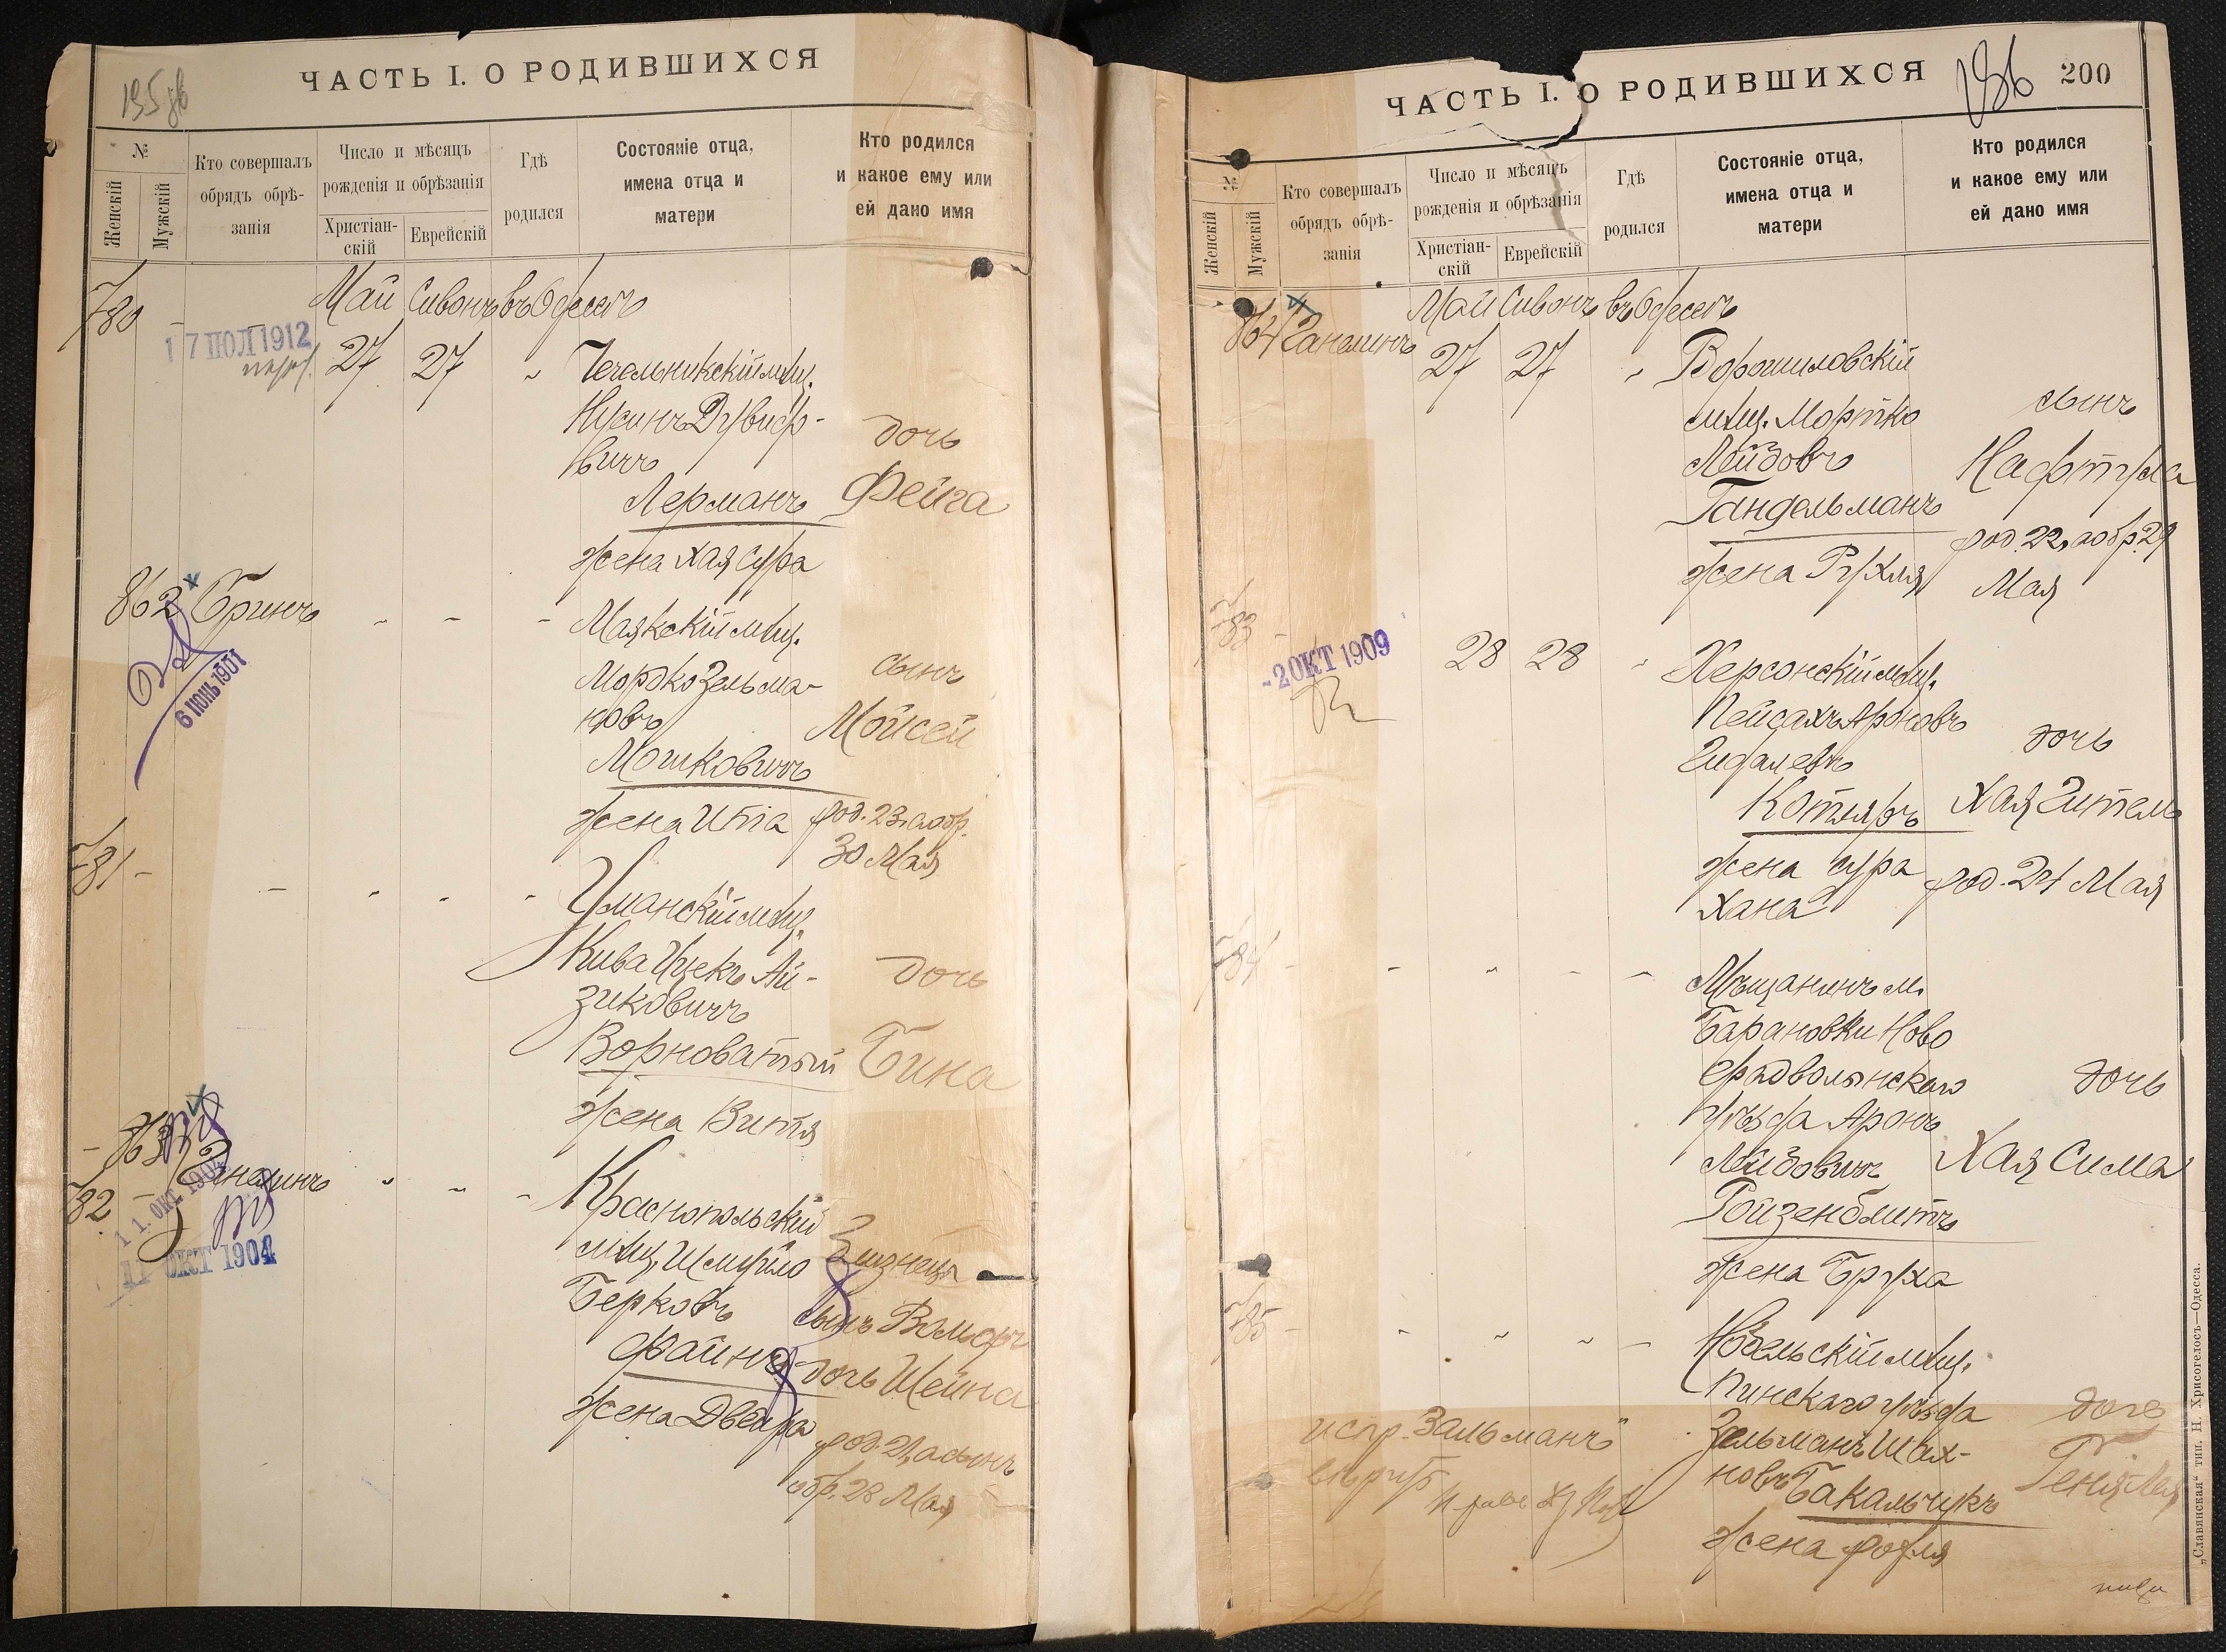 ЧАСТЬ I. О РОДИВШИХСЯ
195
№
Женскій
Мужскій
Кто совершалъ
обрядъ обрѣ-
занія
Число и мѣсяцъ
рожденія и обрѣзанія
Христіан-
скій
Еврейскій
Гдѣ
родился
Состояніе отца,
имена отца и
матери
Кто родился
и какое ему или
ей дано имя
780 - - Май Сивонъ въ Одессѣ
17 ІЮЛ 1912
27 27 „ Чечельникскій мѣщ.
Нусинъ Дувидо-
вичъ
дочь
Лерманъ
Фейга
жена Хая Сура
862 Бринъ - - - Маякскій мѣщ.
6 ІЮНЬ 1901
Мордко Зельма-
новъ
сынъ
Мойсей
Мошковичъ
жена Ита
род. 23, а обр.
30 Мая
781 - - „ - - Уманскій мѣщ.
Кива Ицекъ Ай-
зиковичъ
дочь
Ворноватый
Бина
жена Витя
- 863
782 - „ - - Краснопольский
11. ОКТ 1904
11 ОКТ 1904
мѣщ. Шмуйло
Берковъ
близнецы
сынъ Вольфъ
Файнъ
дочь Шейна
жена Двейра
род. 21, а сынъ
обр. 28 Мая
ЧАСТЬ I. О РОДИВШИХСЯ
196
200
№
Женскій
Мужскій
Кто совершалъ
обрядъ обрѣ-
занія
Число и мѣсяцъ
рожденія и обрѣзанія
Христіан-
скій
Еврейскій
Гдѣ
родился
Состояніе отца,
имена отца и
матери
Кто родился
и какое ему или
ей дано имя
Май Сивонъ въ Одессѣ
864 Ганелинъ 27 27 „ Ворошиловскій
мѣщ. Мортко
Лейбовъ
сынъ
Нафтула
Гандельманъ
род. 22, а обр. 29
Мая
жена Рухля
783 -
-2 ОКТ 1909
28 28 - Херсонскій мѣщ.
Пейсахъ Ароновъ
Гидалевъ
дочь
Котляръ
Хая Гитель
жена Сура
Хана
род. 24 Мая
784 - - „ - - Мѣщанинъ м.
Барановки Ново
градволынскаго
уѣзда Аронъ
дочь
Лейбовичъ
Хая Сима
Ройзенблитъ
жена Бруха
785 - - „ - - Нобельскій мѣщ.
Пинскаго уѣзда
дочь
испр. „Зальманъ“
вѣрить
Зельманъ Шах-
новъ Бакальчукъ
Геня Лея
жена Фрейля
„Славянская“ тип. Н. Хрисогелосъ—Одесса.